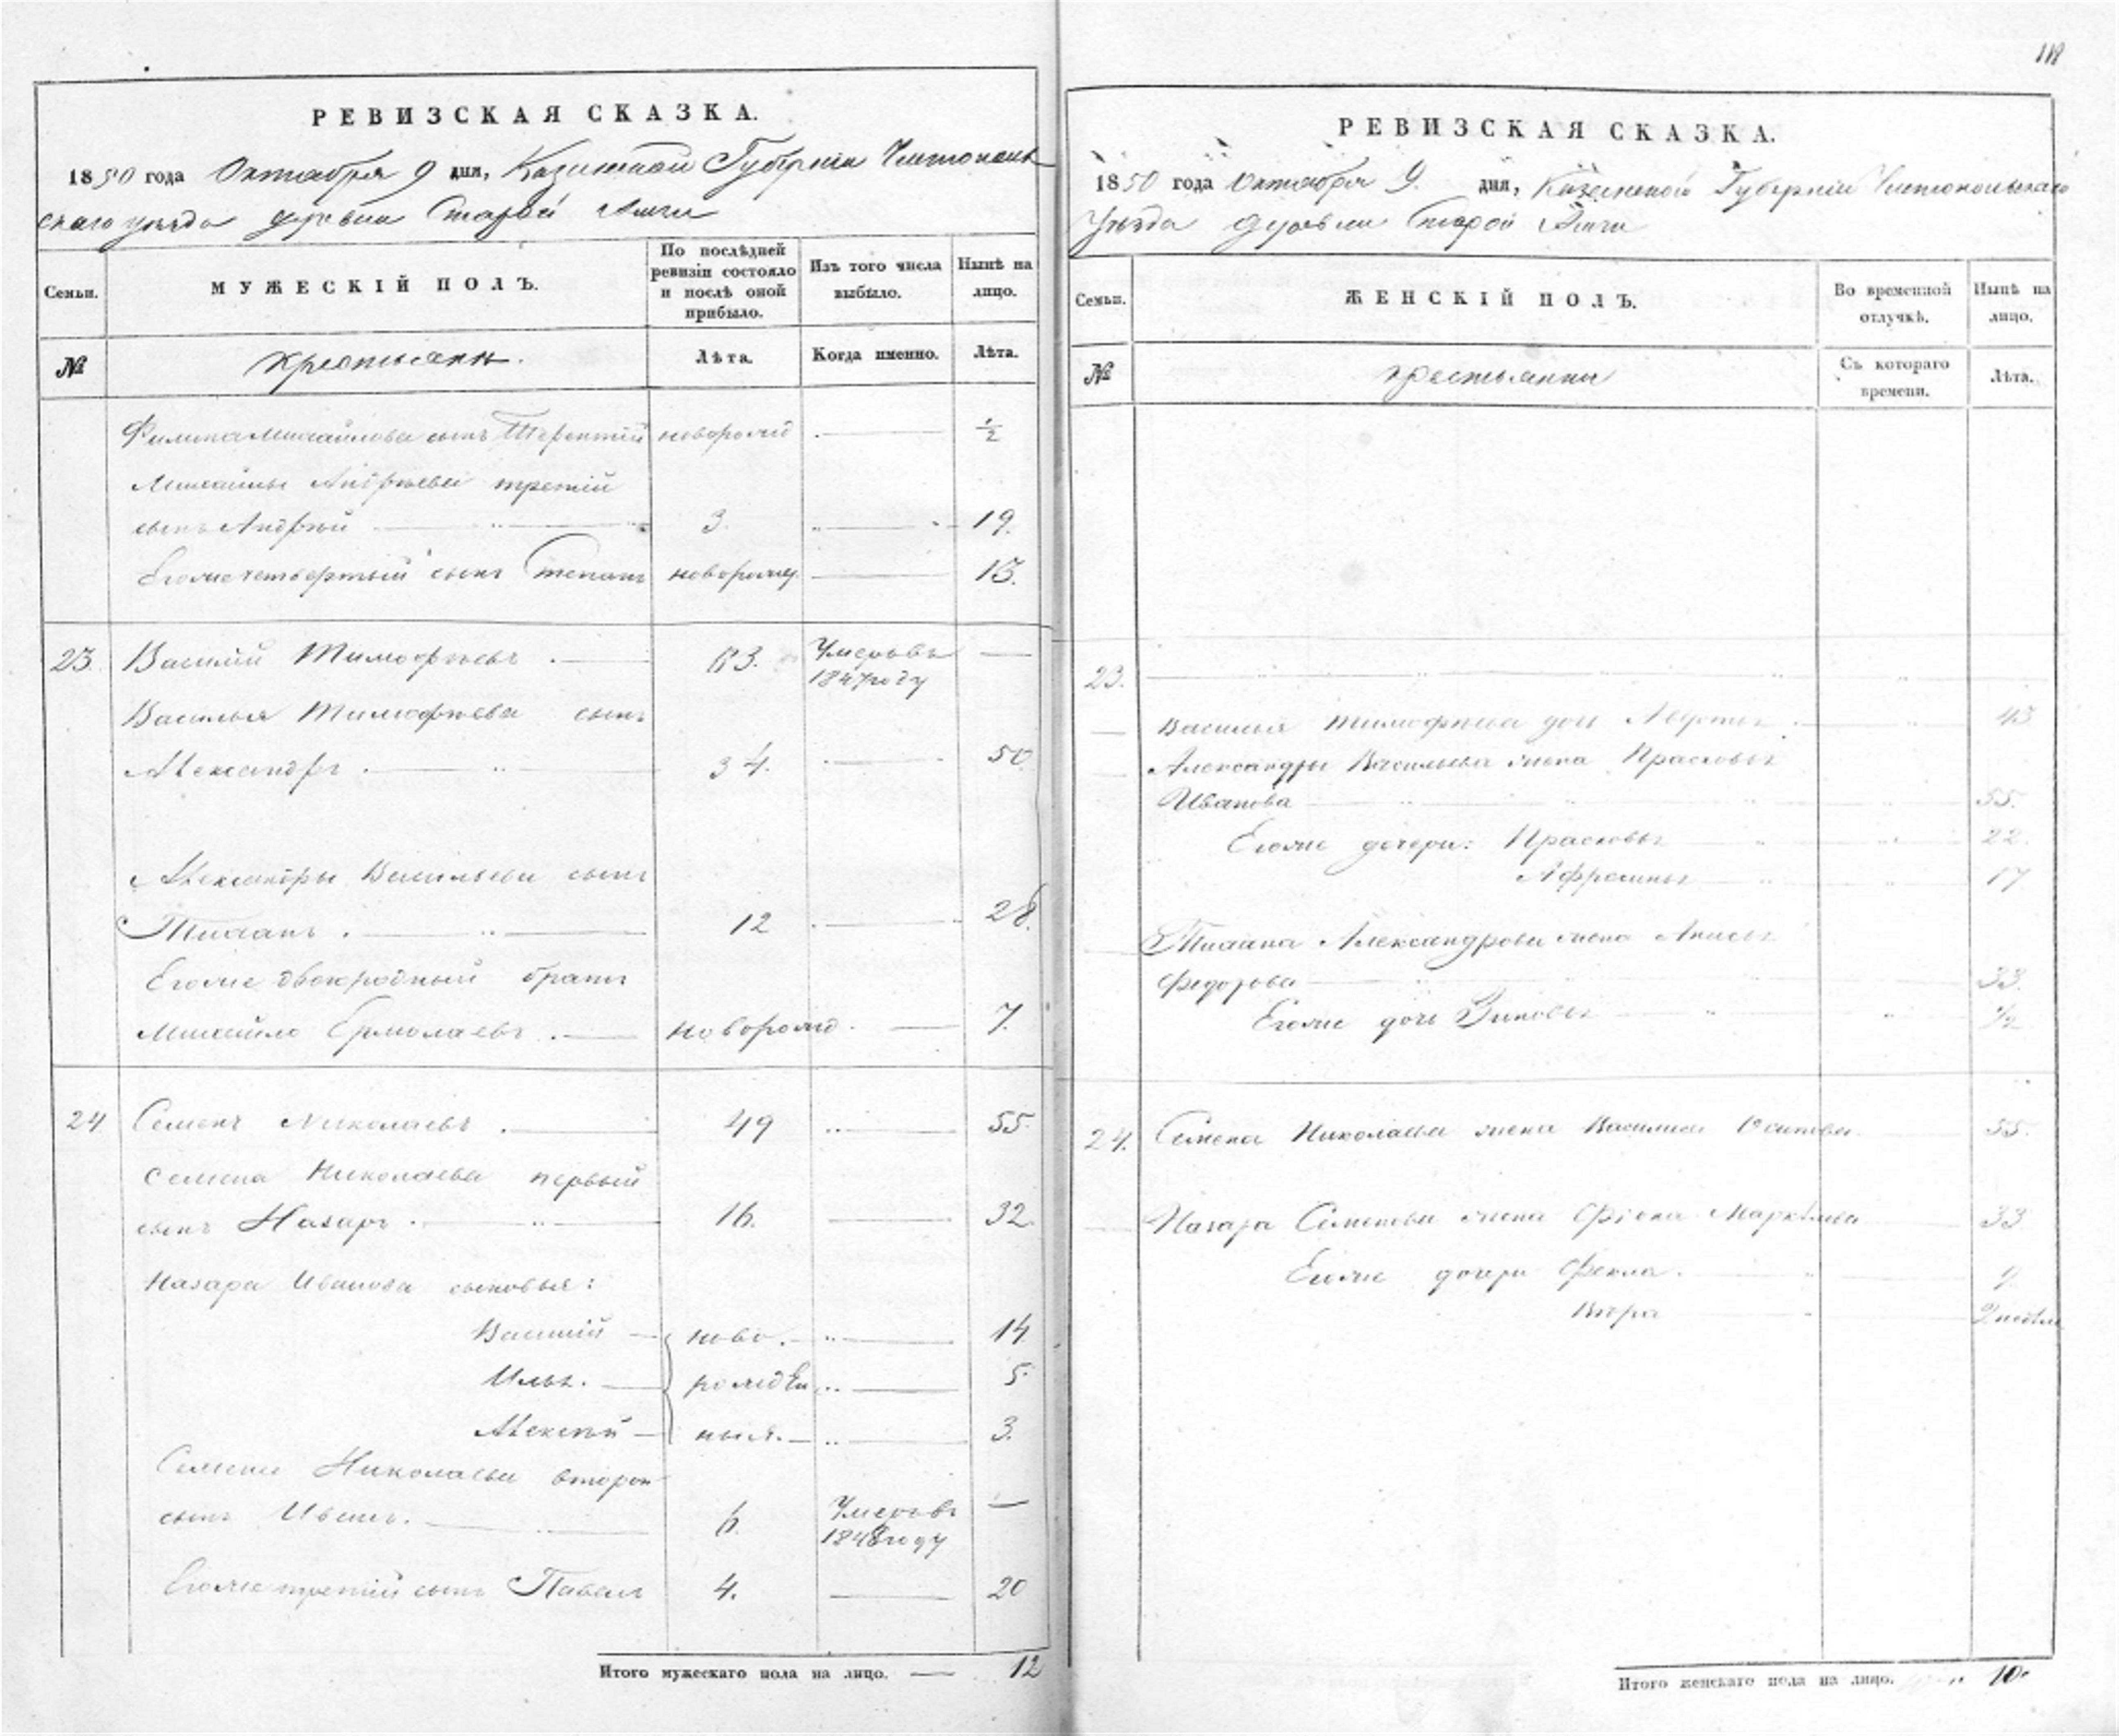 118
РЕВИЗСКАЯ СКАЗКА.
1850 года Октября 9 дня, Казанской Губернии Чистополь
скаго уезда деревни Старой
Семьи.
МУЖЕСКІЙ ПОЛЪ.
По послѣдней ревизіи состояло и послѣ оной прибыло.
Изъ того числа выбыло.
Нынѣ на лицо.
№
Крестьяне.
Лѣта.
Когда именно.
Лѣта.
Филипа Михайлова сынъ Терентій новорожд — ½
Михайлы Андреева третій
сынъ Андрей — 3. — 19.
Егоже четвертый сынъ Степанъ новорожд. — 13.
23. Василій Тимофѣевъ — 63. Умеръ въ —
1847 году
Василья Тимофѣева сынъ
Александръ — 34. — 50
Александры Васильева сынъ
12 — 28.
Егоже двоюродный братъ
Михайло Ермолаевъ — новорожд. — 7.
24 Семенъ Николаевъ — 49 — 55.
Семена Николаева первый
сынъ Назаръ — 16. — 32.
Назара Иванова сыновья:
Василій — ново. — 14
Илья. — рожден — 5
Алексѣй — ныя. — 3.
Семена Николаева второй
сынъ Иванъ. — 6. Умеръ въ —
1848 году
Егоже третій сынъ Павелъ 4. — 20
Итого мужескаго пола на лицо. — 12
РЕВИЗСКАЯ СКАЗКА.
1850 года Октября 9. дня, Казанской Губерніи Чистопольскаго
Уезда деревни Старой
Семьи.
ЖЕНСКІЙ ПОЛЪ.
Во временной отлучкѣ.
Нынѣ на лицо.
№
Крестьянки
Съ котораго времени.
Лѣта.
23.
Василья Тимофеева дочь Авдотья — 43
Александры Васильева жена Прасковья
Иванова — 55.
Егоже дочери: Прасковья — 22.
Афросинья — 17
Александрова жена Анисья
Федорова — 33.
Егоже дочь Зиновья — ½
24. Семена Николаева жена Василиса Осипова 55.
Назара Семенова жена 33
Егоже дочери Фекла. — 9
Вера — 2 недели
Итого женскаго пола на лицо. 10.